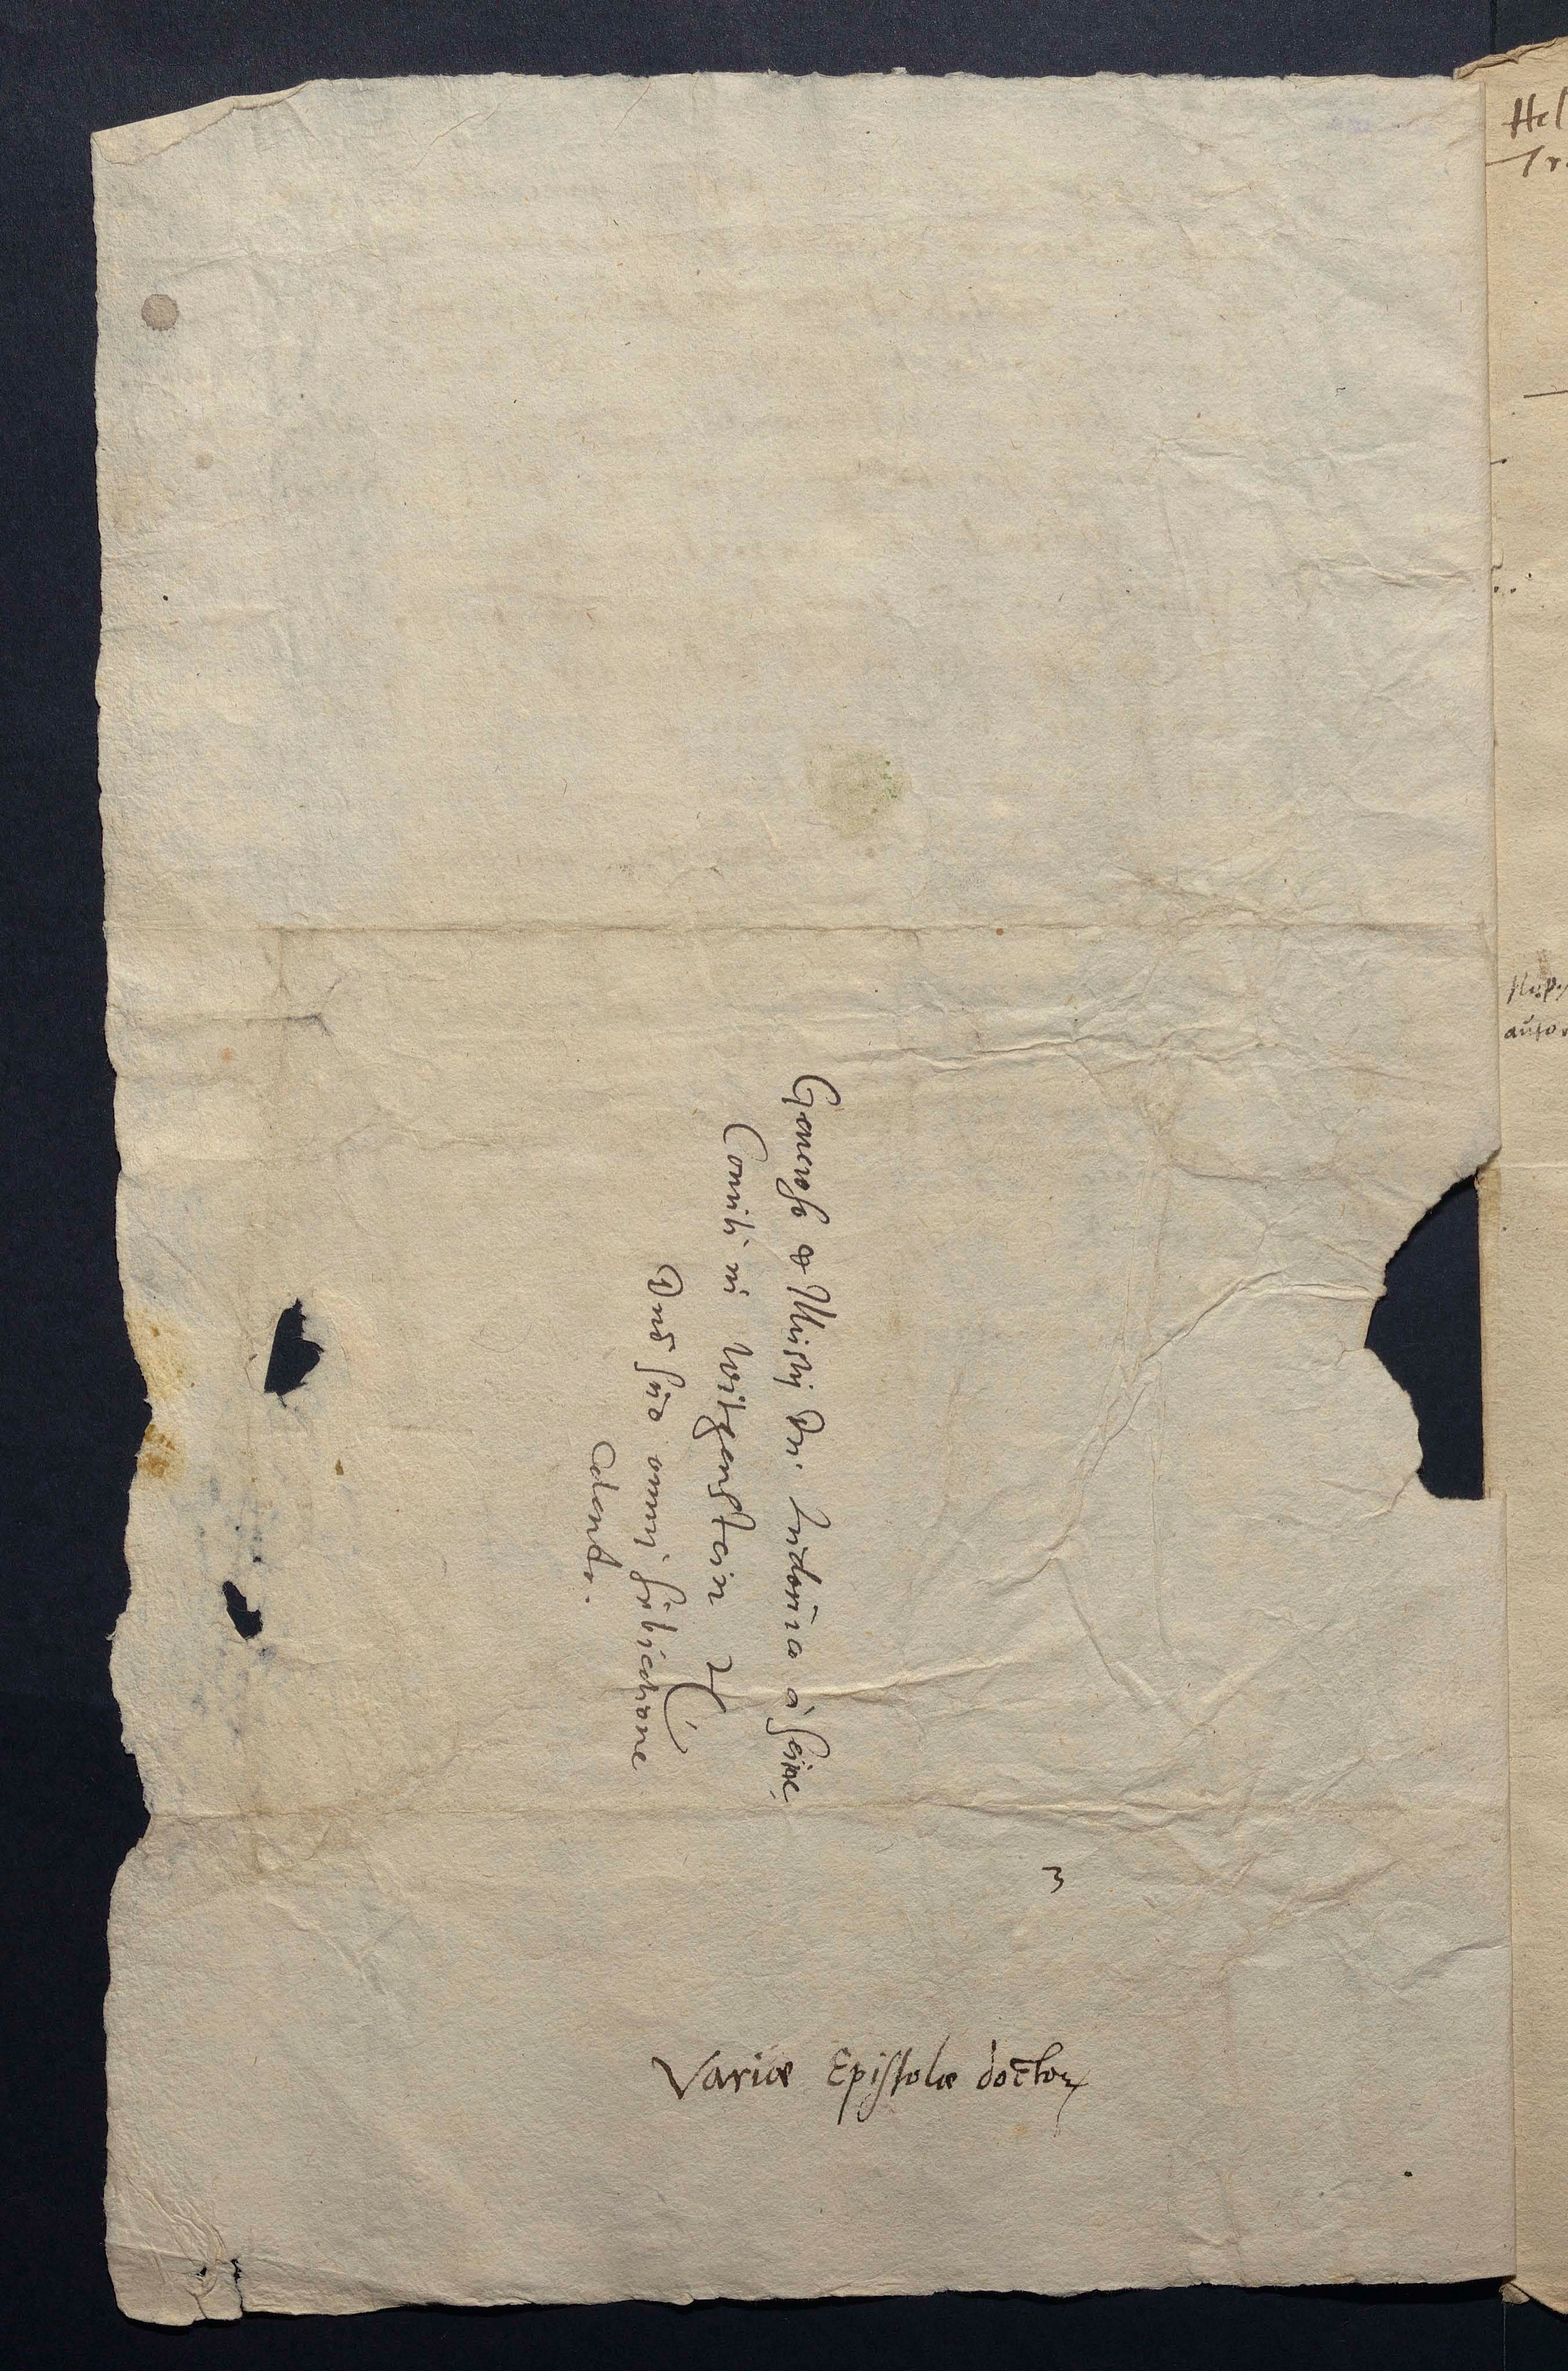 Generoso et Illustrj Dn. Ludovico à Sein,
Comiti in Witgenstein &c
Dno suo omnj subiectione
Colendo.
3
Variæ Epistolæ doctor
Hel